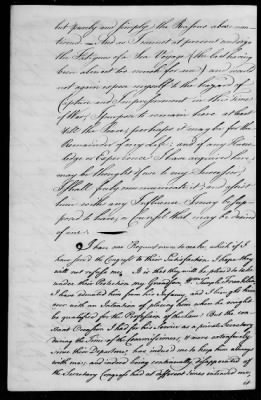 but purely and simply the Reasons above men-
tioned. — And as I cannot at present undergo
the Fatigues of a Sea Voyage (the last having
been almost too much for me) and would
not again expose myself to the hazard of
Capture and Imprisonment in this time
of War, I purpose to remain here at least
till the Peace; perhaps it may be for the
Remainder of my Life; and if any Know-
ledge or Experience I have acquired here
may be thought of use to my Successor,
I shall freely communicate it, and assist
him with any Influence I may be sup-
posed to have, or Counsel that may be desired
of me. —
I have one Request more to make, which if I
have serv'd the Congress to their Satisfaction, I hope they
will not refuse me. It is that they will be pleas'd to take
under their Protection my Grandson, Wm. Temple Franklin.
I have educated him from his Infancy, and I brought him
over with an Intention of placing him where he might
be qualified for the Profession of the Law: But the con-
stant Occasion I had for his Service as a private Secretary
during the Time of the Commissioners, & more extensively
since their Departure, has induced me to keep him always
with me; and indeed being continually disappointed of
the Secretary Congress had at different times intended me,
it